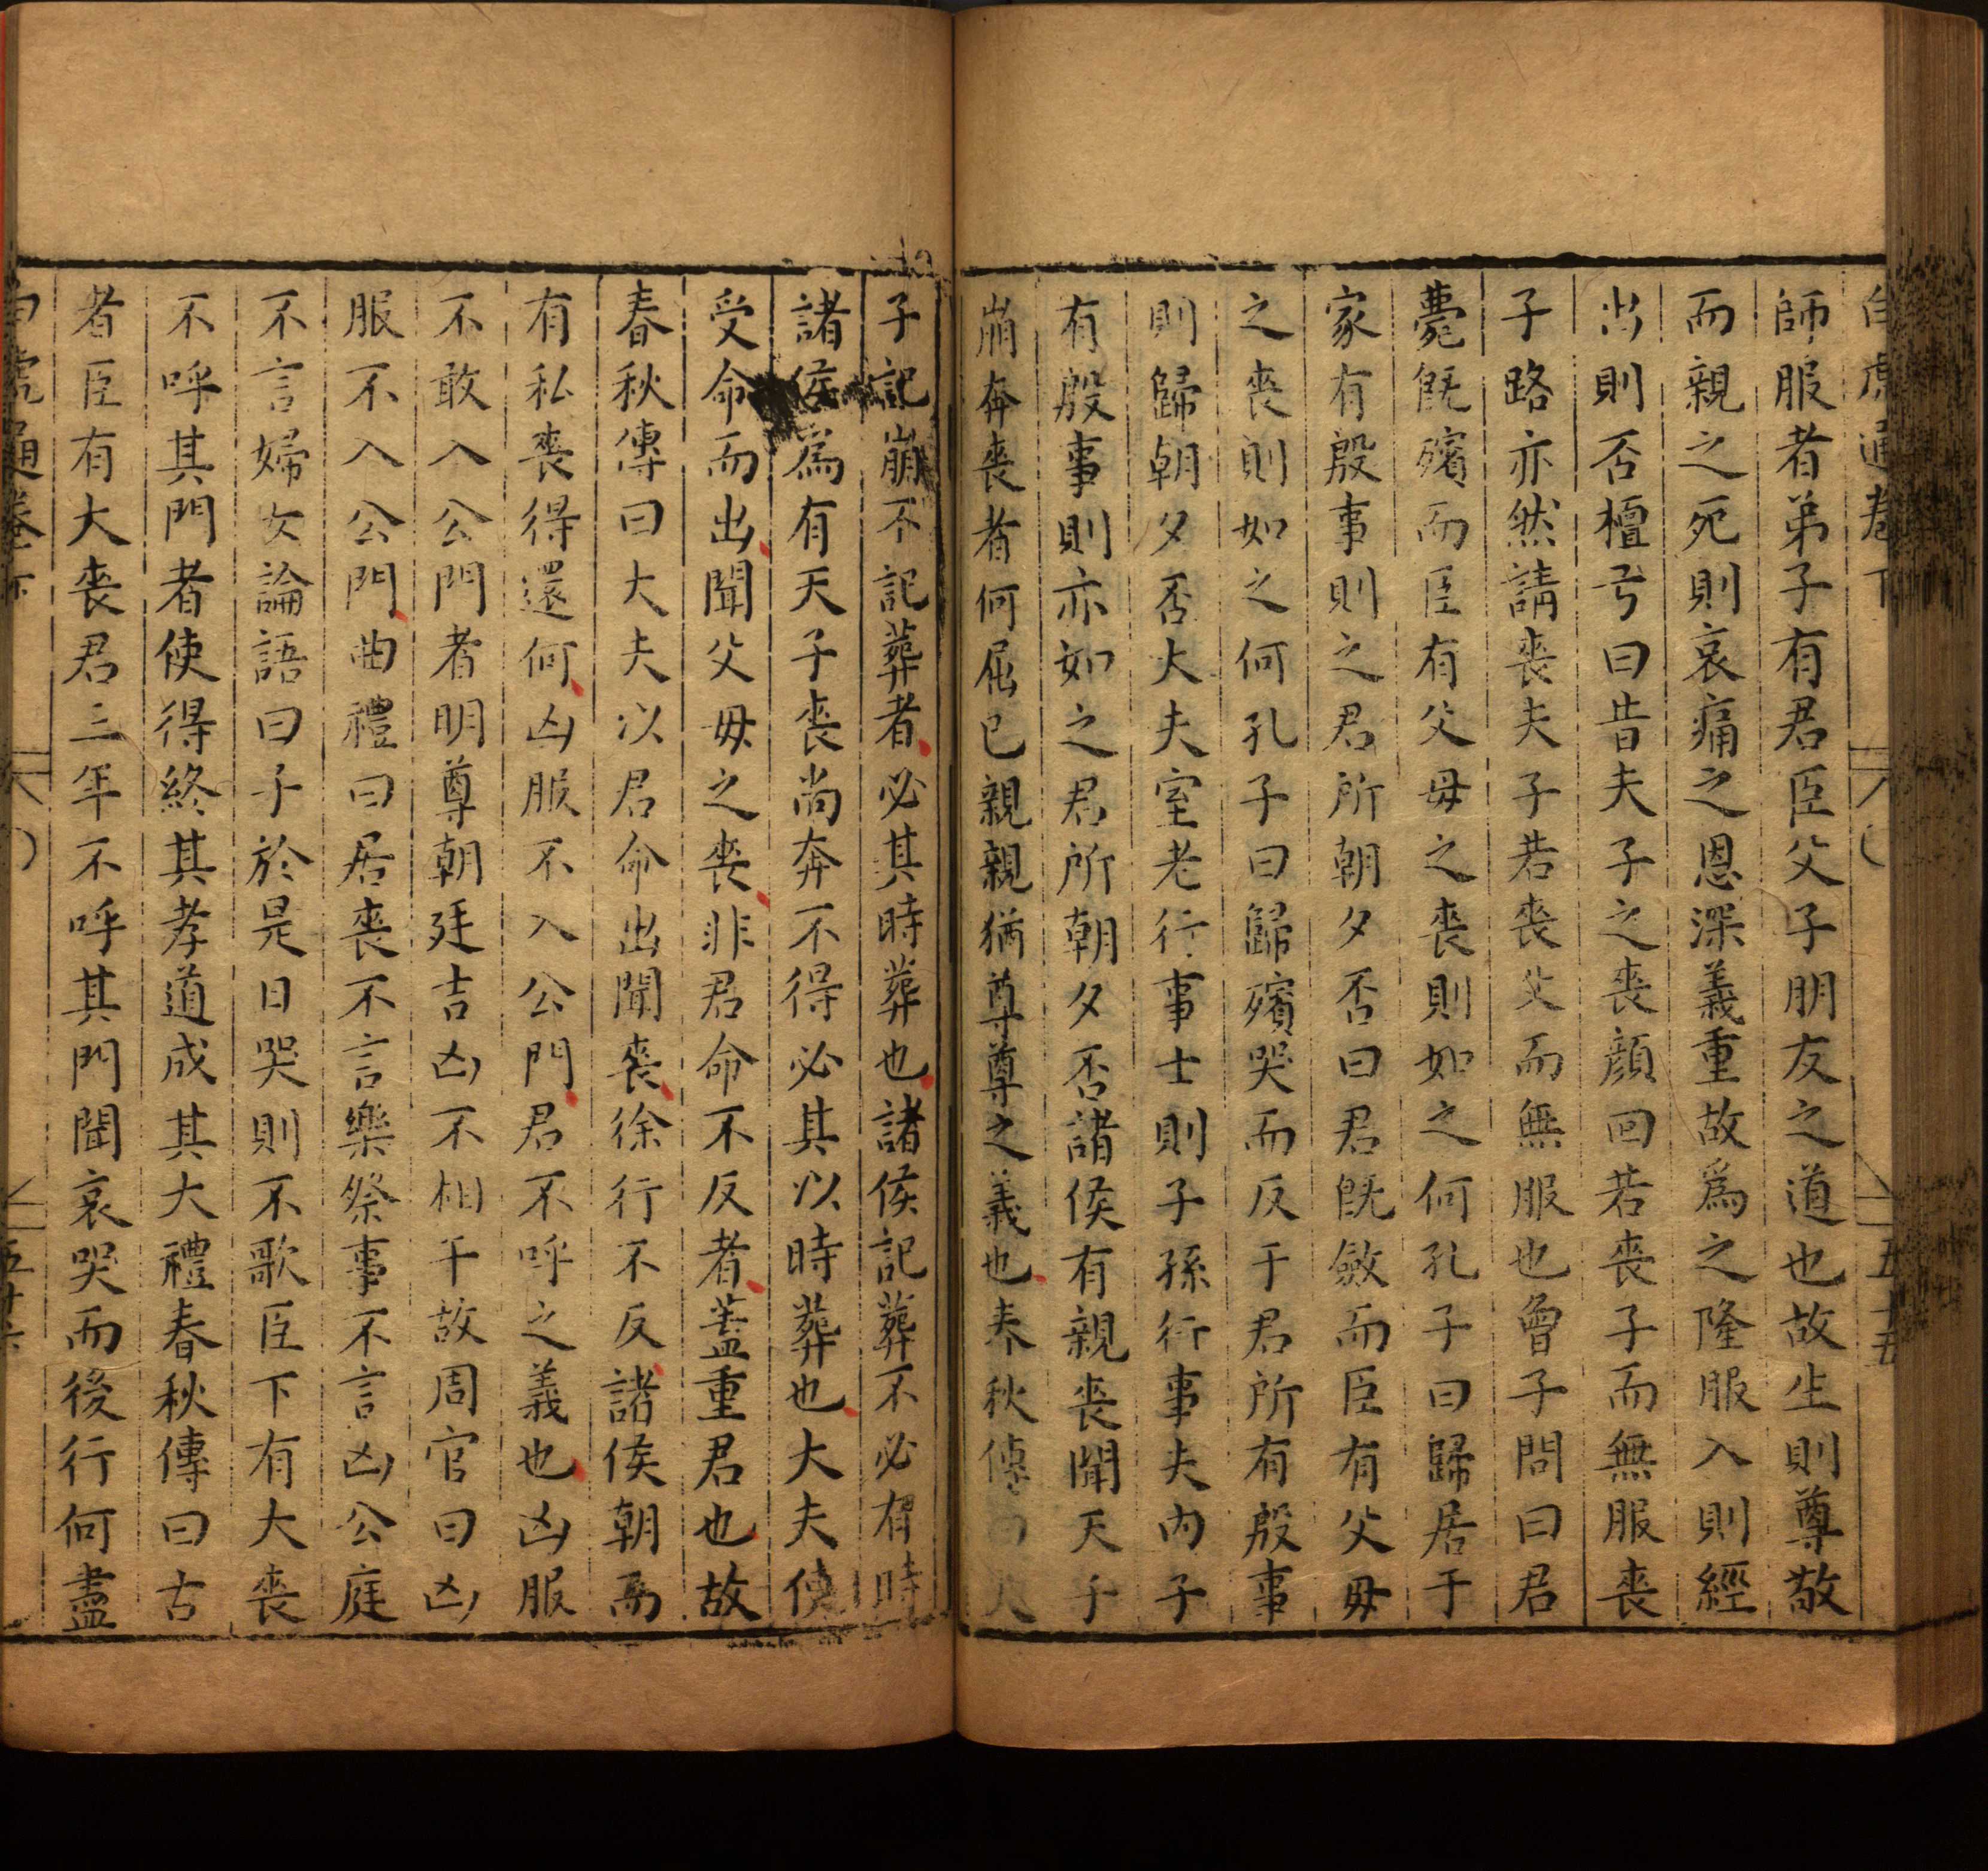 白虎通卷下 五十五
師服者弟子有君臣父子朋友之道也故生則尊敬
而親之死則哀痛之恩深義重故爲之隆服入則經
出則否檀弓曰昔夫子之喪顔回若喪子而無服喪
子路亦然請喪夫子若喪父而無服也曾子問曰君
薨旣殯而臣有父母之喪則如之何孔子曰歸居于
家有殷事則之君所朝夕否曰君旣斂而臣有父母
之喪則如之何孔子曰歸殯哭而反于君所有殷事
則歸朝夕否大夫室老行事士則子孫行事夫内子
有殷事則亦如之君所朝夕否諸侯有親喪聞天子
崩奔喪者何屈已親親猶尊尊之義也春秋傳曰天
子記崩不記葬者必其時葬也諸侯記葬不必有時
諸侯爲有天子喪尚奔不得必其以時葬也大夫使
受命而出聞父母之喪非君命不反者蓋重君也故
春秋傳曰大夫以君命出聞喪徐行不反諸侯朝而
有私喪得還何凶服不入公門君不呼之義也凶服
不敢入公門者明尊朝廷吉凶不相干故周官曰凶
服不入公門曲禮曰居喪不言樂祭事不言凶公庭
不言婦女論語曰子於是日哭則不歌臣下有大喪
不呼其門者使得終其孝道成其大禮春秋傳曰古
者臣有大喪君三年不呼其門聞哀哭而後行何盡
白虎通卷下 五十六